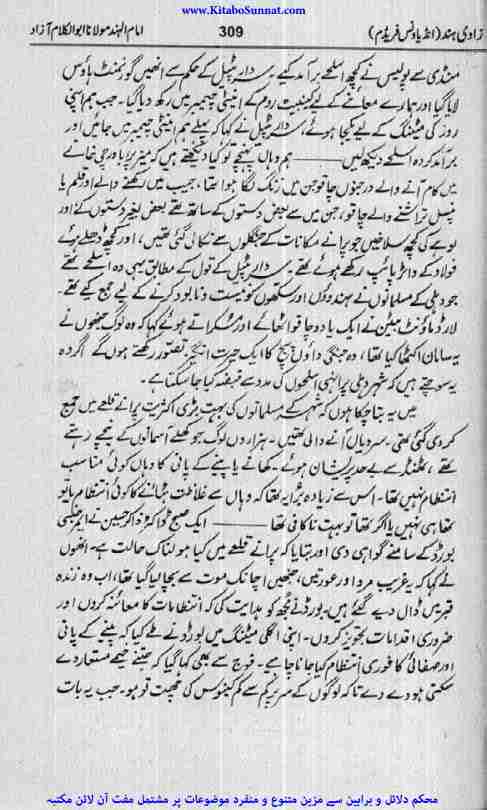 www.KitaboSunnat.com
زادی ہند (انڈیا ونس فریڈم) 309 امام الہند مولانا ابوالکلام آزاد
منڈی سے پولیس نے کچھ اسلحے برآمد کیے۔ سردار پٹیل کے حکم سے انھیں گورنمنٹ ہاؤس
لایا گیا اور ہمارے معائنے کے لیے کیبنیٹ روم کے اینٹی چیمبر میں رکھ دیا گیا۔ جب ہم اپنی
روز کی میٹنگ کے لیے یکجا ہوئے، سردار پٹیل نے کہا کہ پہلے ہم اینٹی چیمبر میں جائیں اور
برآمد کردہ اسلحے دیکھ لیں ــــــ ہم وہاں پہنچے تو کیا دیکھتے ہیں کہ میز پر باورچی خانے
میں کام آنے والے درجنوں چاقو جن میں زنگ لگا ہوا تھا، جیب میں رکھنے والے اور قلم یا
پنسل تراشنے والے چاقو، جن میں سے بعض دستوں کے ساتھ تھے بعض بغیر دستوں کے اور
لوہے کی کچھ سلاخیں جو پرانے مکانات کے جنگلوں سے نکالی گئی تھیں، اور کچھ ڈھلے ہوئے
فولاد کے واٹر پائپ رکھے ہوئے تھے۔ سردار پٹیل کے قول کے مطابق یہی وہ اسلحے تھے
جو دہلی کے مسلمانوں نے ہندوؤں اور سکھوں کو نیست و نابود کرنے کے لیے جمع کیے تھے۔
لارڈ ماؤنٹ بیٹن نے ایک یا دو چاقو اٹھائے اور مسکراتے ہوئے کہا کہ وہ لوگ جنھوں نے
یہ سامان اکٹھا کیا تھا، وہ جنگی داؤں پیچ کا ایک حیرت انگیز تصور رکھتے ہوں گے اگر وہ
یہ سوچتے ہیں کہ شہر دہلی پر انہی اسلحوں کی مدد سے قبضہ کیا جا سکتا ہے۔
میں یہ بتا چکا ہوں کہ شہر کے مسلمانوں کی بہت بڑی اکثریت پرانے قلعے میں جمع
کر دی گئی تھی۔ سردیاں آنے والی تھیں۔ ہزاروں لوگ جو کھلے آسمانوں کے نیچے رہتے
تھے، ٹھنڈ سے بے حد پریشان ہوئے۔ کھانے یا پینے کے پانی کا وہاں کوئی مناسب
انتظام نہیں تھا۔ اس سے زیادہ برا یہ تھا کہ وہاں سے غلاظت ہٹانے کا کوئی انتظام یا تو
تھا ہی نہیں یا اگر تھا تو بہت ناکافی تھا ــــــ ایک صبح ڈاکٹر ذاکر حسین نے ایمرجنسی
بورڈ کے سامنے گواہی دی اور بتایا کہ پرانے قلعے میں کیا ہولناک حالت ہے۔ انھوں
نے کہا کہ یہ غریب مرد اور عورتیں، جنھیں اچانک موت سے بچا لیا گیا تھا، اب وہ زندہ
قبر میں ڈال دیے گئے ہیں۔ بورڈ نے مجھ کو ہدایت کی کہ انتظامات کا معائنہ کروں اور
ضروری اقدامات تجویز کروں۔ اپنی اگلی میٹنگ میں بورڈ نے طے کیا کہ پینے کے پانی
اور صفائی کا فوری انتظام کیا جانا چاہیے۔ فوج سے بھی کہا گیا کہ جتنے خیمے مستعار دے
سکتی ہو دے دے تاکہ لوگوں کے سر پر کم سے کم کینوس کی چھت تو ہو۔ جب یہ بات
محکم دلائل و براہین سے مزین متنوع و منفرد موضوعات پر مشتمل مفت آن لائن مکتبہ